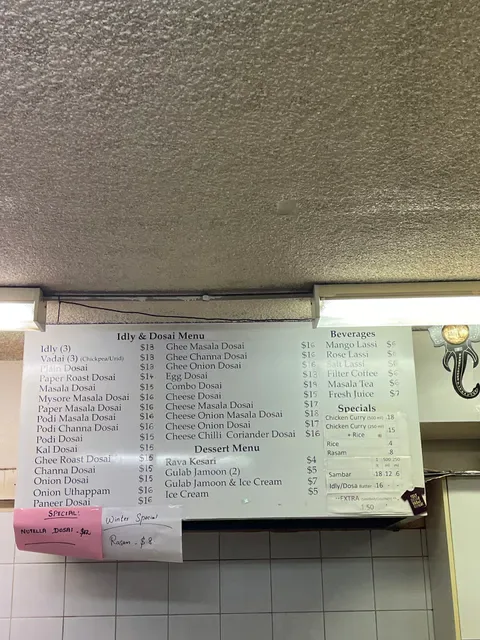 Idly & Dosai Menu
Idly (3) $13
Vadai (3) (Chickpea/Urid) $13
Plain Dosai
Paper Roast Dosai $14
Masala Dosai $15
Mysore Masala Dosai $16
Paper Masala Dosai $16
Podi Masala Dosai $16
Podi Channa Dosai $16
Podi Dosai $15
Kal Dosai
Ghee Roast Dosai
Channa Dosai $15
Onion Dosai $15
Onion Uthappam $16
Paneer Dosai $16
Ghee Masala Dosai $16
Ghee Channa Dosai $16
Ghee Onion Dosai $16
Egg Dosai
Combo Dosai
Cheese Dosai
Cheese Masala Dosai $17
Cheese Onion Masala Dosai $18
Cheese Onion Dosai $17
Cheese Chilli Coriander Dosai $16
Dessert Menu
Rava Kesari $4
Gulab Jamoon (2) $5
Gulab Jamoon & Ice Cream $7
Ice Cream $5
Beverages
Mango Lassi
Rose Lassi
Salt Lassi
Filter Coffee
Masala Tea
Fresh Juice $7
Specials
Chicken Curry 18
Chicken Curry 15
+ Rice
Rice 4
Rasam .8
Sambar 18 12 6
Idly/Dosa 16
EXTRA
1.50
SPECIAL:
NUTELLA DOSAI - $12
Winter Special
Rasam - $8